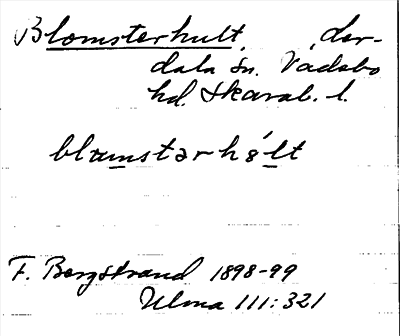 Blomsterhult,
dala sn. Vadsbo
hd. Skarab. l.
blωmstərhɞ́lt
F. Bergstrand 1898-99
Ulma 111:321